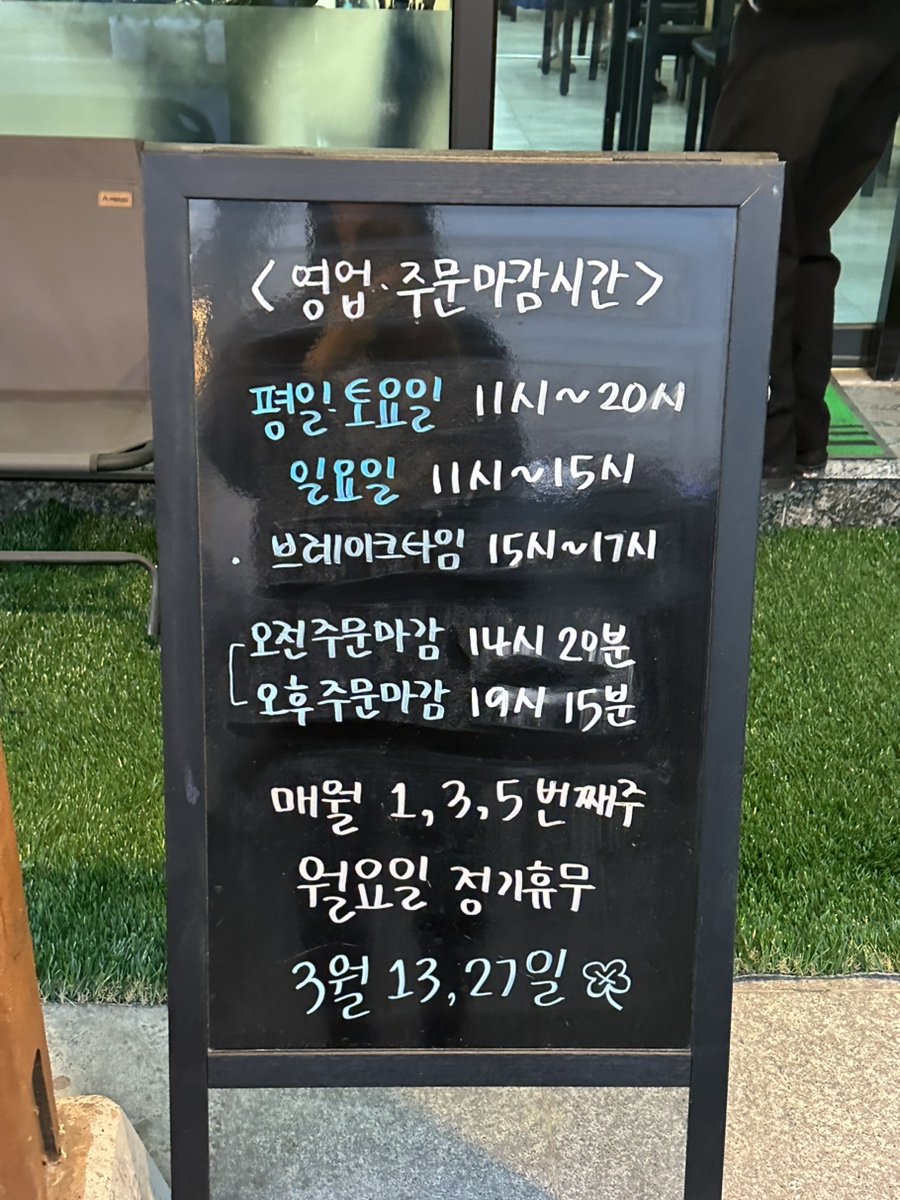 < 영업·주문마감시간 >
평일·토요일 11시~20시
일요일 11시~15시
· 브레이크타임 15시~17시
오전주문마감 14시 20분
오후주문마감 19시 15분
매월 1,3,5번째주
월요일 정기휴무
3월 13,27일